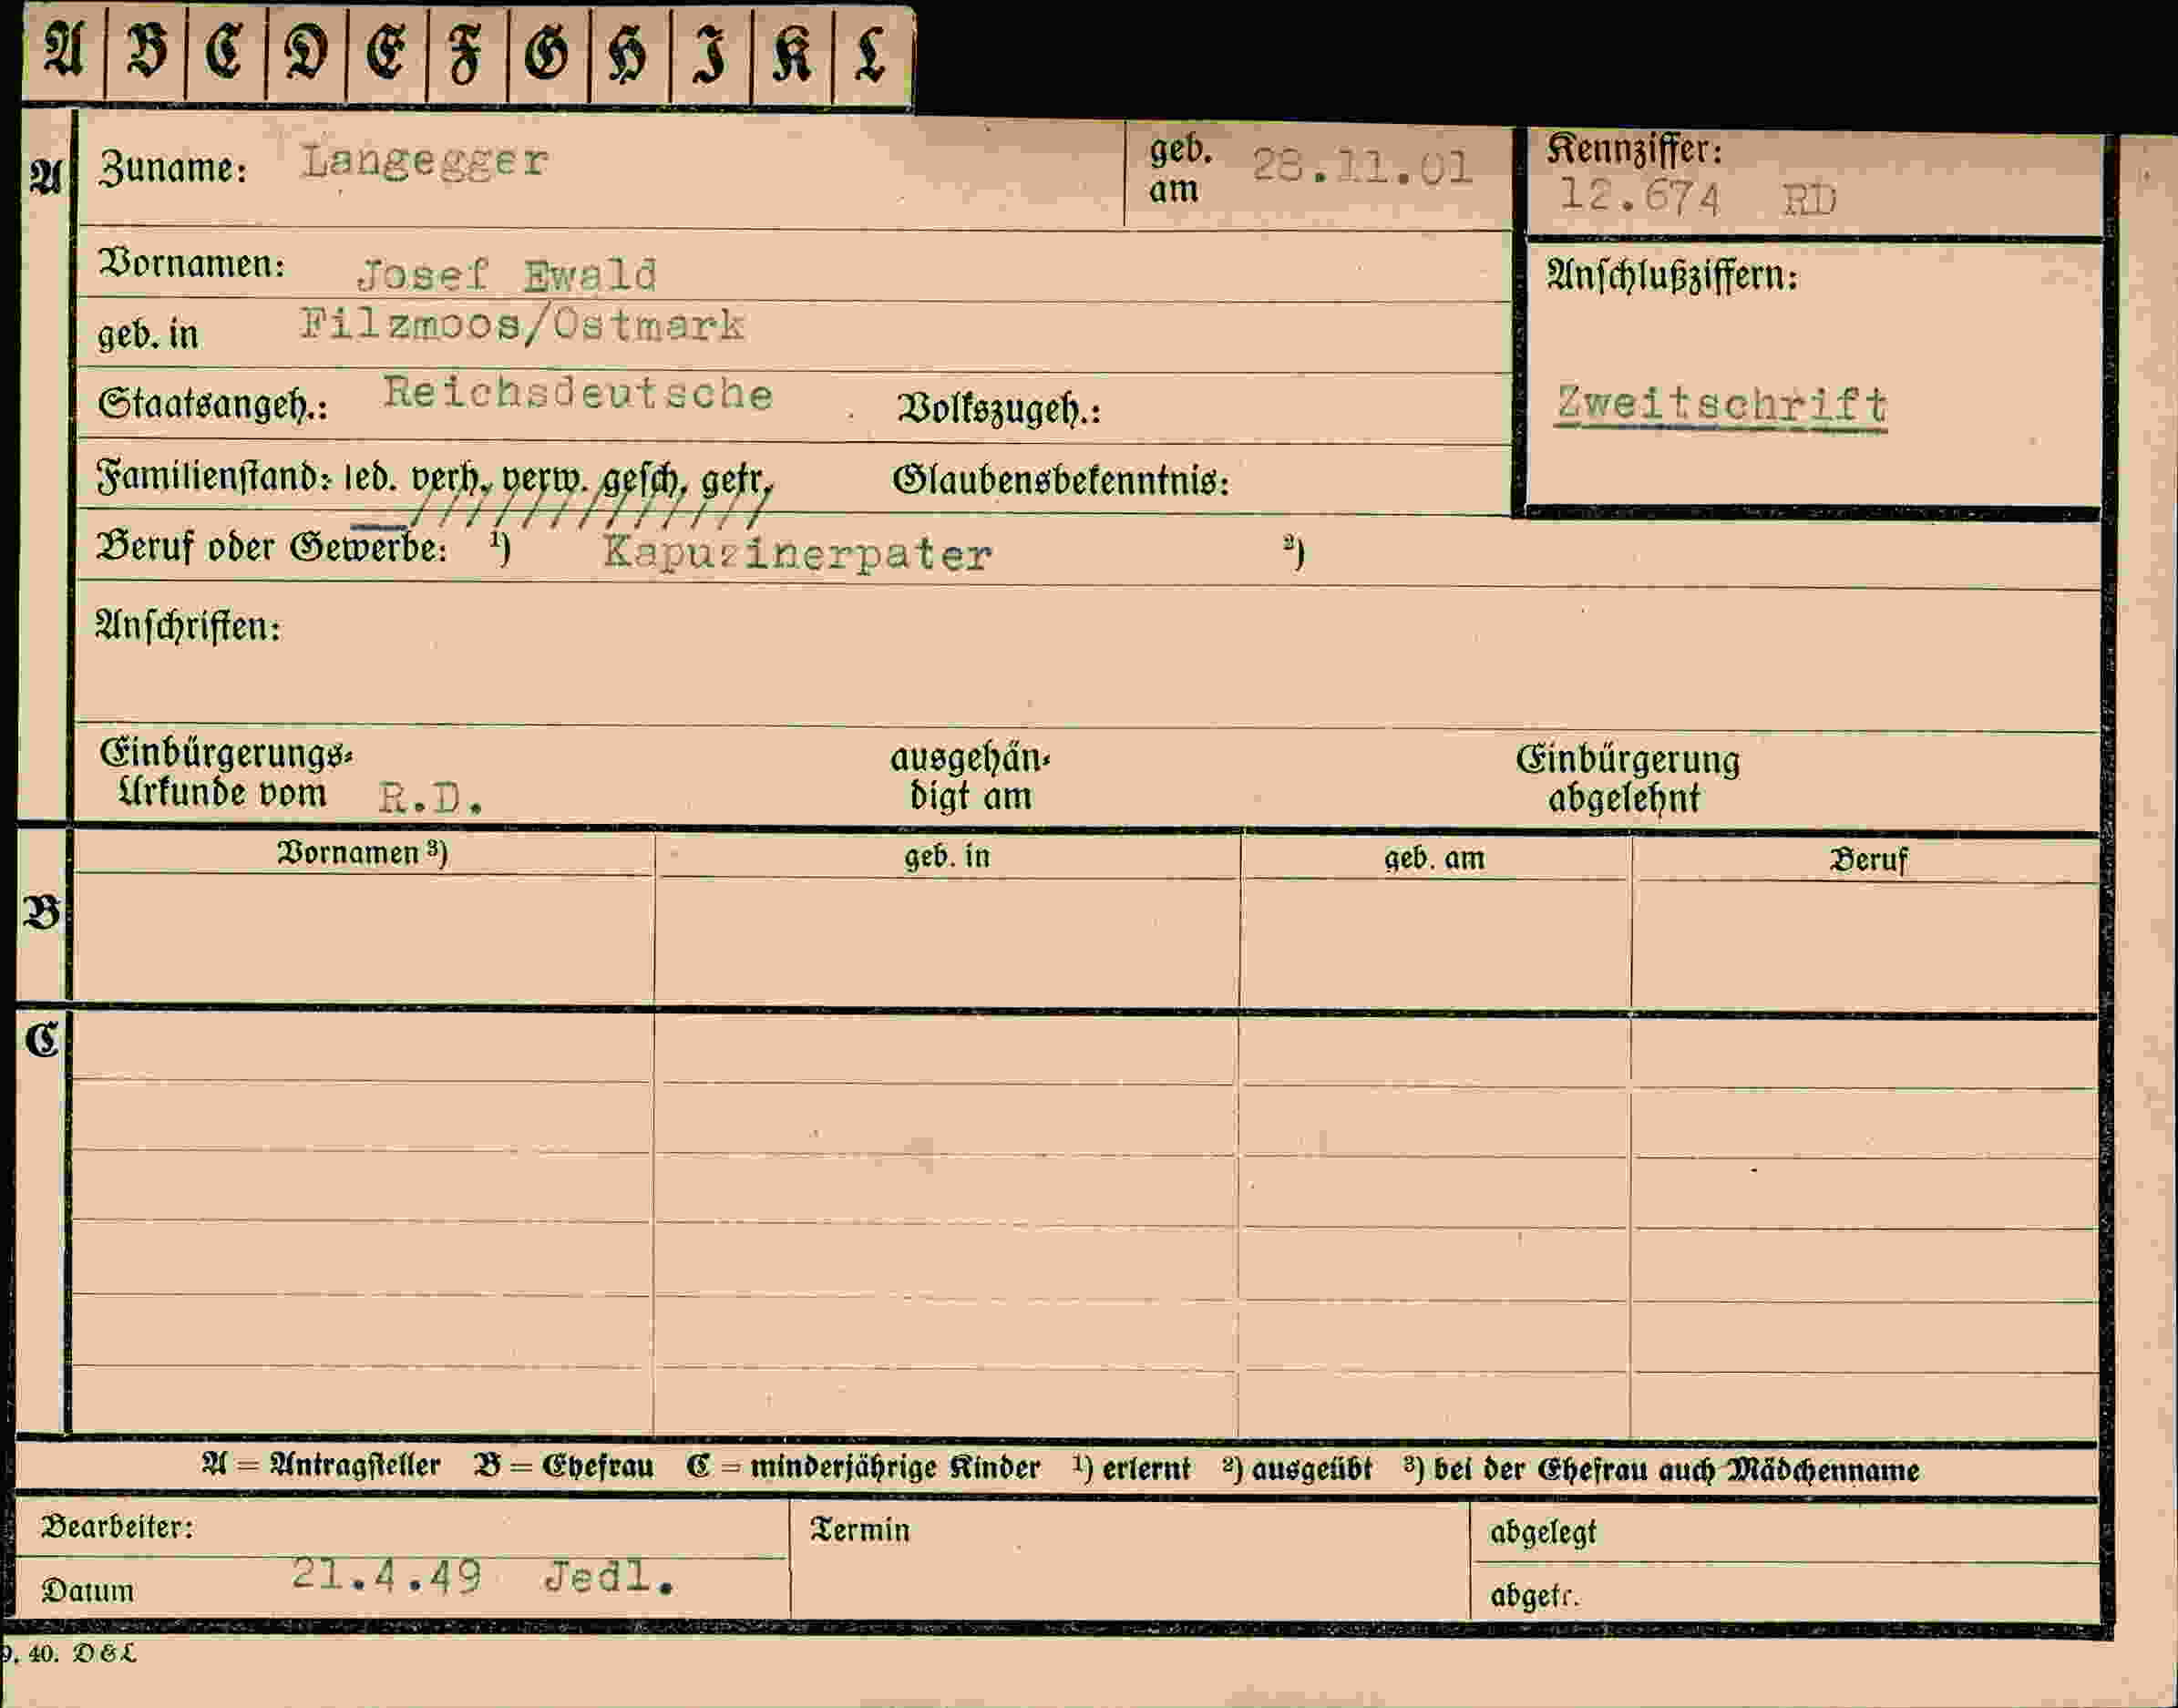 A B C D E F G H I K L
A Zuname: Langegger geb. am 28.11.01 Kennziffer:
12.674 RD
Vornamen: Josef Ewald Anschlußziffern:
geb. in Filzmoos/Ostmark
Staatsangeh.: Reichsdeutsche Volkszugeh.: Zweitschrift
Familienstand: led. verh. verw. gesch. getr. Glaubensbekenntnis:
Beruf oder Gewerbe: ¹) Kapuzinerpater ²)
Anschriften:
Einbürgerungs= ausgehän= Einbürgerung
Urkunde vom R.D. digt am abgelehnt
Vornamen ³) geb. in geb. am Beruf
B
C
A = Antragsteller B = Ehefrau C = minderjährige Kinder ¹) erlernt ²) ausgeübt ³) bei der Ehefrau auch Mädchenname
Bearbeiter: Termin abgelegt
Datum 21.4.49 Jedl. abgetr.
9. 40. D&L